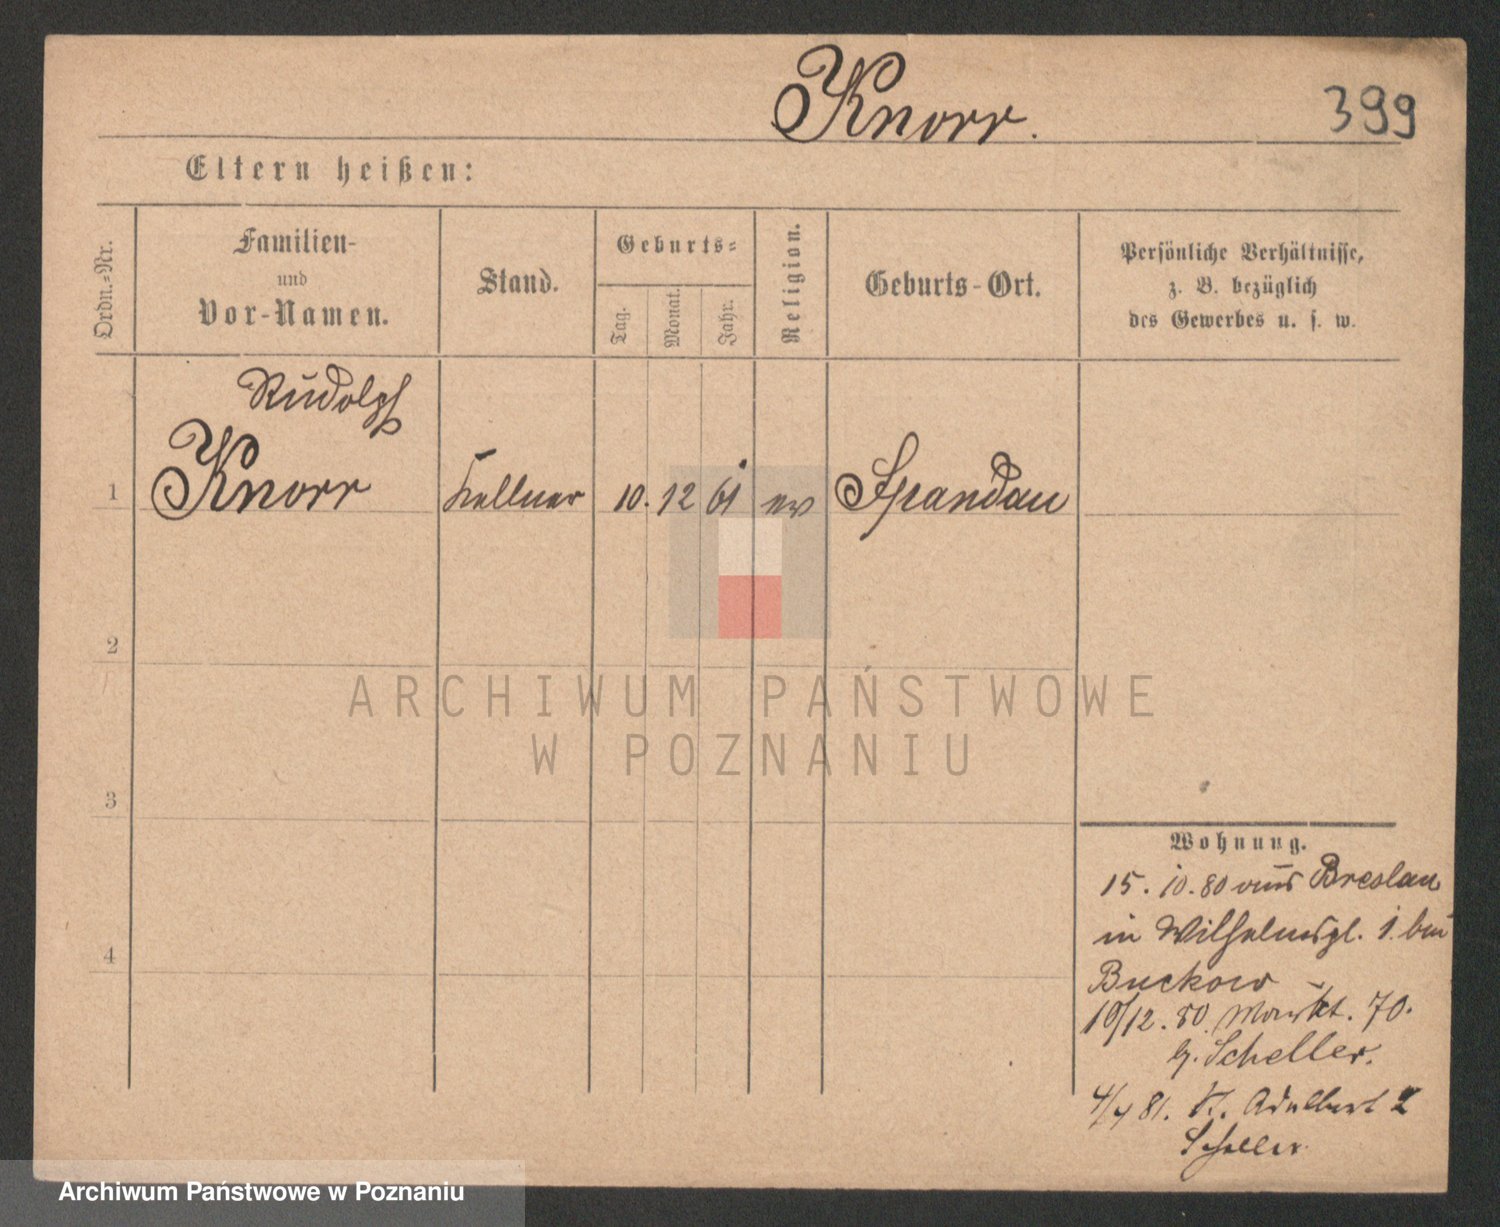 Knorr.
399
Eltern heißen:
Ordn.-Nr.
Familien-
und
Vor-Namen.
Stand.
Geburts-
Tag.
Monat.
Jahr.
Religion.
Geburts-Ort.
Persönliche Verhältnisse,
z. B. bezüglich
des Gewerbes u. s. w.
Rudolph
1 Knorr Kellner 10. 12 61 ev Spandau
2
3
4
ARCHIWUM PAŃSTWOWE
W POZNANIU
Wohnung.
15. 10. 80 aus Breslau
in Wilhelmspl. 1. bei
Buckow
19/12. 80. Markt. 70.
b. Scheller.
4/4 81. St. Adalbert 2
Scheller
Archiwum Państwowe w Poznaniu